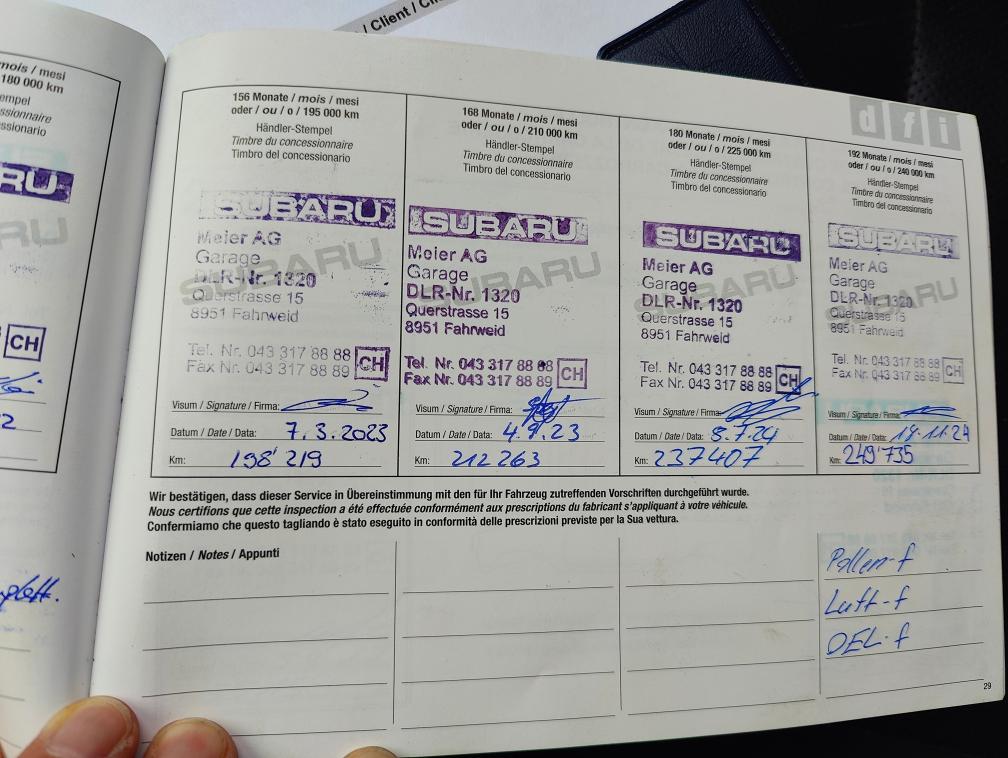 / Client / Client
mois / mesi
180 000 km
CH
2
plett.
dfi
156 Monate / mois / mesi
oder / ou / o / 195 000 km
Händler-Stempel
Timbre du concessionnaire
Timbro del concessionario
SUBARU
Meier AG
Garage
DLR-Nr. 1320
Querstrasse 15
8951 Fahrweid
Tel. Nr. 043 317 88 88
Fax Nr. 043 317 88 89
CH
Visum / Signature / Firma:
Datum / Date / Data: 7.3.2023
Km: 198'219
168 Monate / mois / mesi
oder / ou / o / 210 000 km
Händler-Stempel
Timbre du concessionnaire
Timbro del concessionario
SUBARU
Meier AG
Garage
DLR-Nr. 1320
Querstrasse 15
8951 Fahrweid
Tel. Nr. 043 317 88 88
Fax Nr. 043 317 88 89
CH
Visum / Signature / Firma:
Datum / Date / Data: 4.9.23
Km: 212263
180 Monate / mois / mesi
oder / ou / o / 225 000 km
Händler-Stempel
Timbre du concessionnaire
Timbro del concessionario
SUBARU
Meier AG
Garage
DLR-Nr. 1320
Querstrasse 15
8951 Fahrweid
Tel. Nr. 043 317 88 88
Fax Nr. 043 317 88 89
CH
Visum / Signature / Firma:
Datum / Date / Data: 8.7.24
Km: 237407
192 Monate / mois / mesi
oder / ou / o / 240 000 km
Händler-Stempel
Timbre du concessionnaire
Timbro del concessionario
SUBARU
Meier AG
Garage
DLR-Nr. 1320
Querstrasse 15
8951 Fahrweid
Tel. Nr. 043 317 88 88
Fax Nr. 043 317 88 89
CH
Visum / Signature / Firma:
Datum / Date / Data: 19.11.24
Km: 249'735
Wir bestätigen, dass dieser Service in Übereinstimmung mit den für Ihr Fahrzeug zutreffenden Vorschriften durchgeführt wurde.
Nous certifions que cette inspection a été effectuée conformément aux prescriptions du fabricant s'appliquant à votre véhicule.
Confermiamo che questo tagliando è stato eseguito in conformità delle prescrizioni previste per la Sua vettura.
Notizen / Notes / Appunti
Pollen-f
Luft-f
OEL-f
29